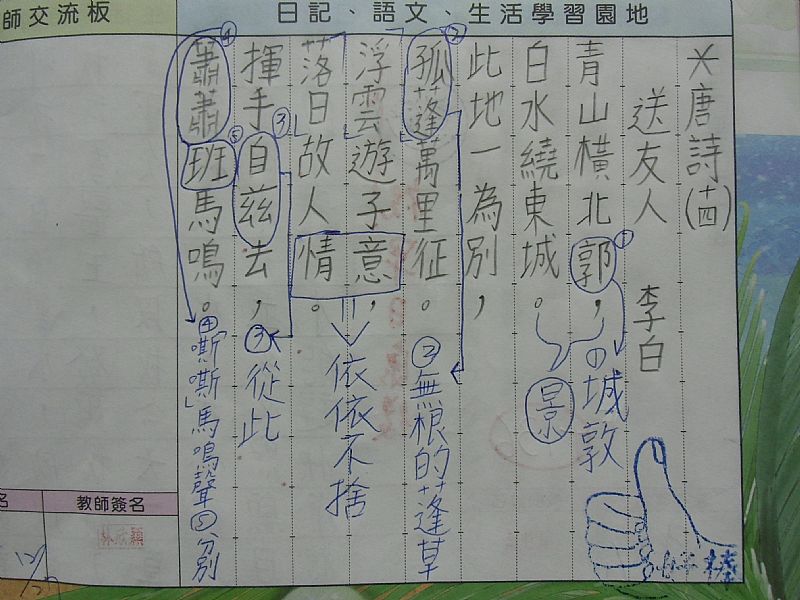 師交流板
日記、語文、生活學習園地
＊唐詩(十四)
送友人 李白
青山橫北郭，①城敦
白水繞東城。景
此地一為別，
孤蓬萬里征。②無根的蓬草
浮雲遊子意，
落日故人情。依依不捨
揮手自茲去，③從此
蕭蕭班馬鳴。④「嘶嘶」馬鳴聲⑤分別
①
②
③
④
⑤
名
教師簽名
林欣穎
12/27
好棒